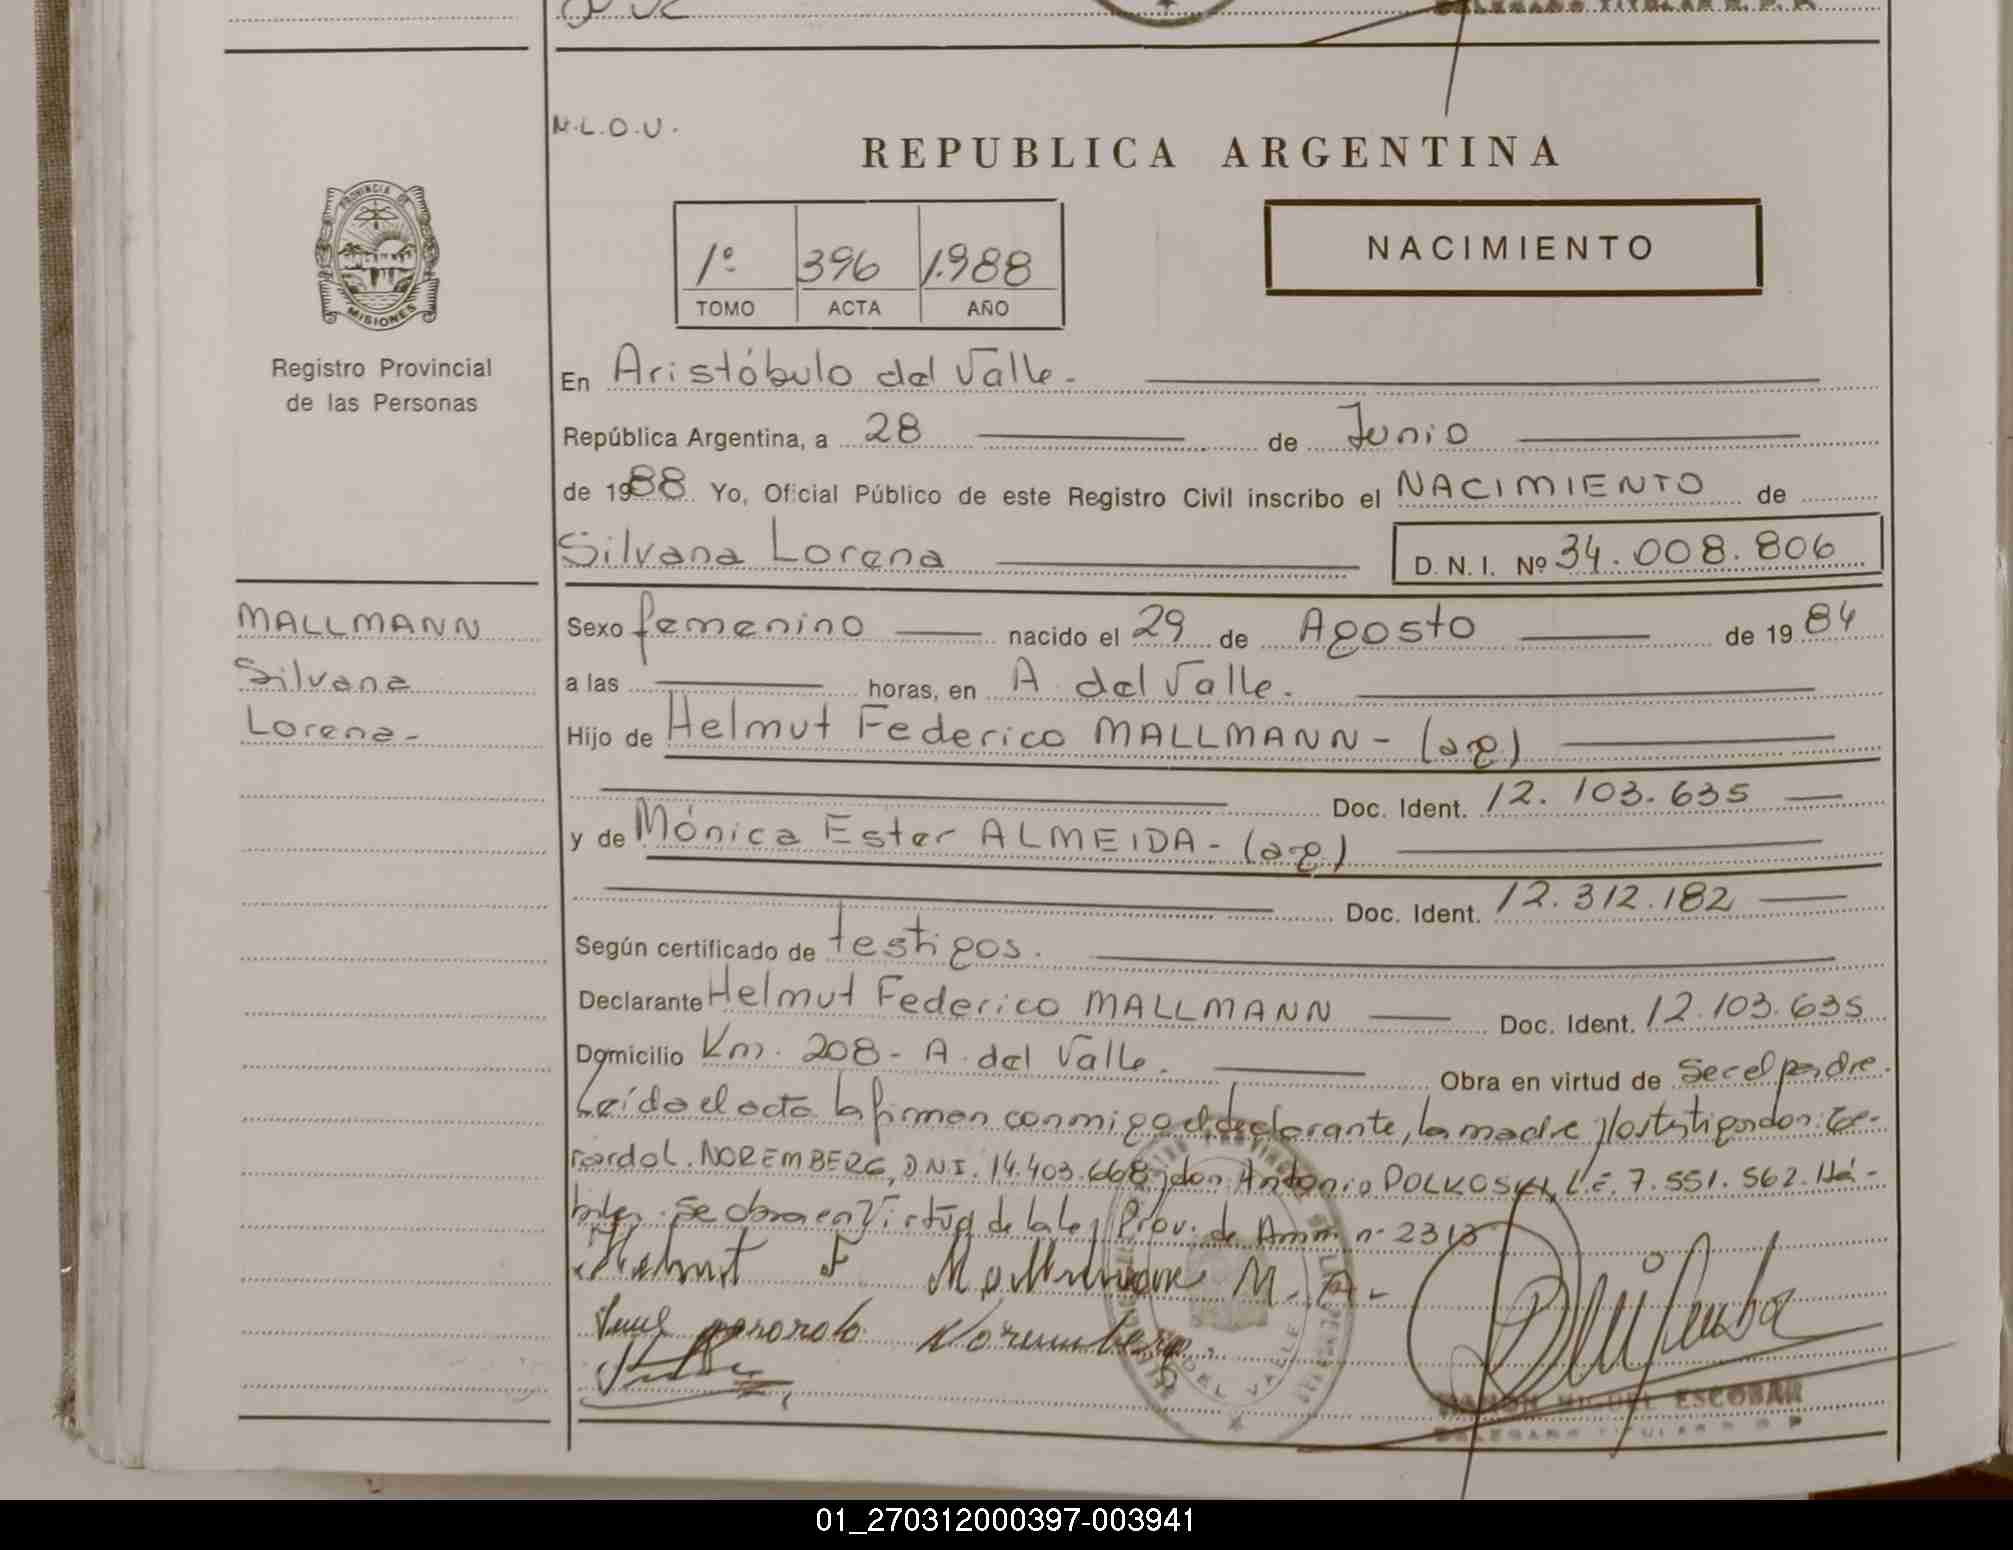 M.L.O.U.
REPUBLICA ARGENTINA
1º 396 1.988
TOMO ACTA AÑO
NACIMIENTO
PROVINCIA DE
MISIONES
Registro Provincial
de las Personas
En Aristóbulo del Valle.-
República Argentina, a 28 de Junio
de 1988 Yo, Oficial Público de este Registro Civil inscribo el NACIMIENTO de
Silvana Lorena D. N. I. Nº 34.008.806
MALLMANN
Silvana
Lorena-
Sexo femenino nacido el 29 de Agosto de 1984
a las horas, en A. del Valle.
Hijo de Helmut Federico MALLMANN - (ag)
Doc. Ident. 12.103.635
y de Mónica Ester ALMEIDA - (ag)
Doc. Ident. 12.312.182
Según certificado de testigos.
Declarante Helmut Federico MALLMANN Doc. Ident. 12.103.635
Domicilio Km. 208 - A. del Valle. Obra en virtud de Ser el padre.
Leída el acta la firman conmigo el declarante, la madre y los testigos don: Ge-
rardo L. NOREMBERG, D.N.I. 14.403.668 y don Antonio POLKOSKI, L.E. 7.551.562. Há-
biles. Se obra en Virtud de la ley Prov. de Amn. nº 2313
Helmut F Mallmann M. A.-
Noremberg.
DEL VALLE
RAMON MIGUEL ESCOBAR
DELEGADO TITULAR R. P. P.
01_270312000397-003941